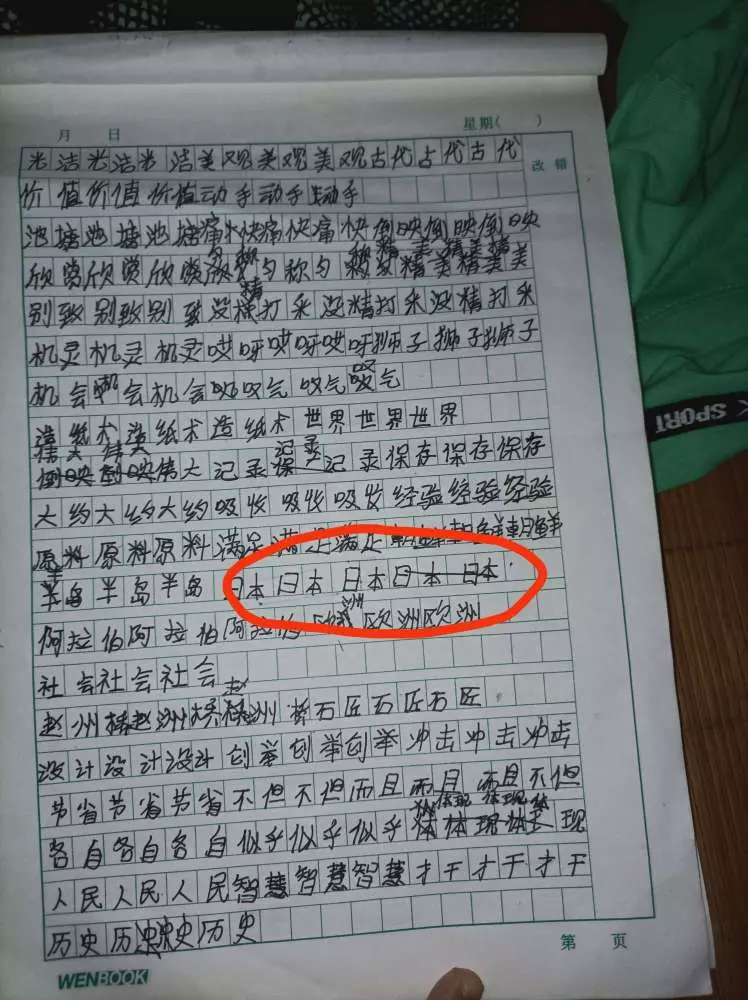 月 日 星期( )
光洁光洁光洁美观美观美观古代古代古代
改错
价值价值价值动手动手动手
池塘池塘池塘痛快痛快痛快倒映倒映倒映
欣赏欣赏欣赏匀称匀称匀称精美精美精美
别致别致别致没精打采没精打采没精打采
机灵机灵机灵哎呀哎呀哎呀狮子狮子狮子
机会机会机会叹气叹气叹气
造纸术造纸术造纸术世界世界世界
伟大伟大 记录
倒映倒映伟大记录保记录保存保存保存
大约大约大约吸收吸收吸收经验经验经验
原料原料原料满足满足满足朝鲜朝鲜朝鲜
半岛半岛半岛日本日本日本日本日本
阿拉伯阿拉伯阿拉伯欧洲欧洲欧洲
社会社会社会
赵州桥赵州桥赵州桥石匠石匠石匠
设计设计设计创举创举创举冲击冲击冲击
节省节省节省不但不但而且而且而且不但
各自各自各自似乎似乎似乎体现体现
人民人民人民智慧智慧智慧才干才干才干
历史历史历史
第 页
WENBOOK
K SPORT